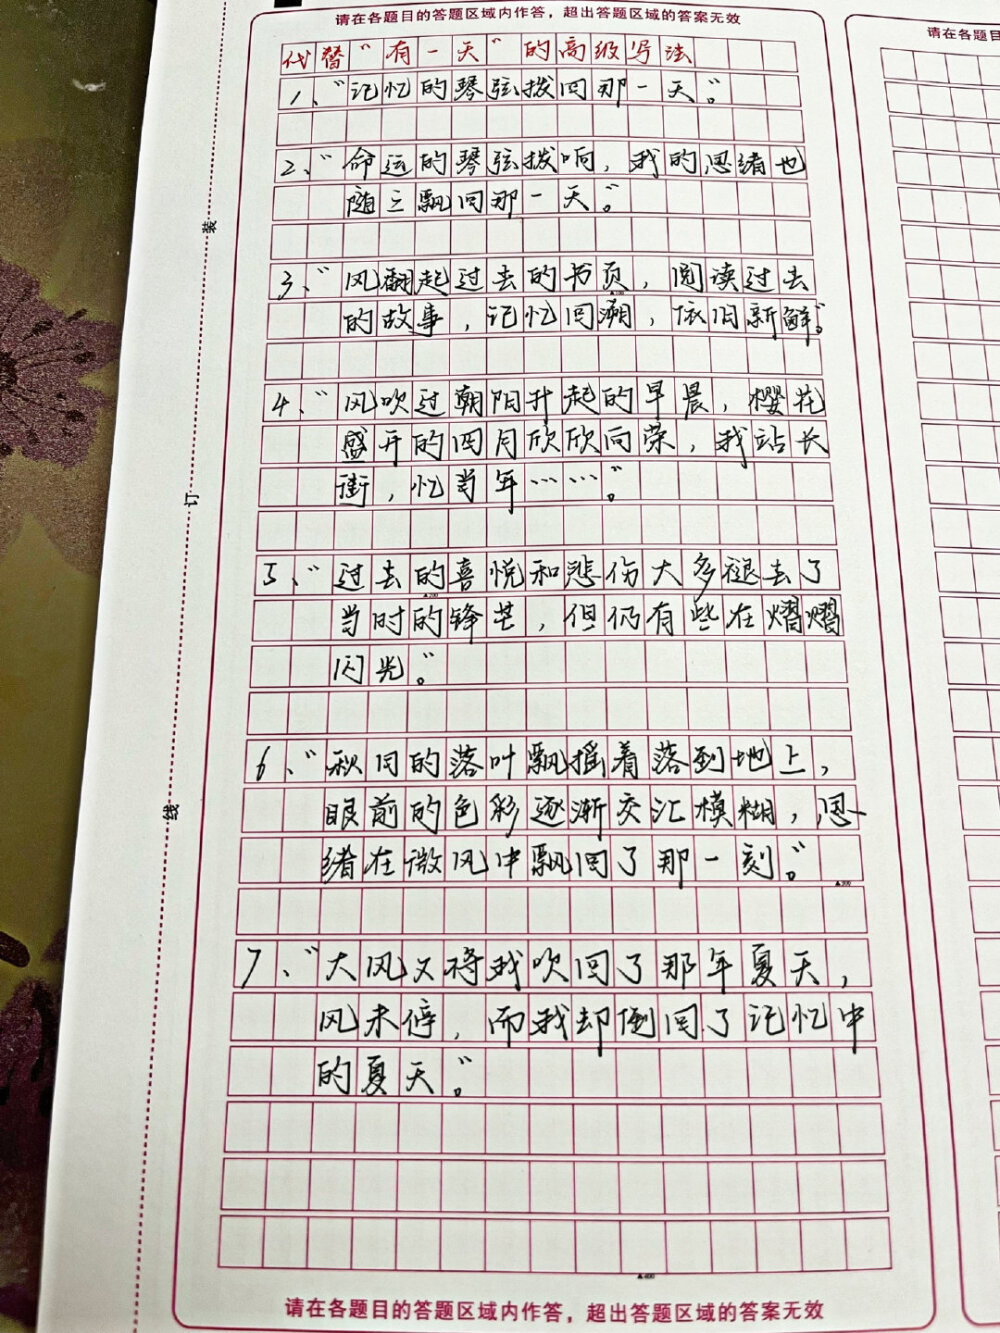 请在各题目的答题区域内作答，超出答题区域的答案无效
代替“有一天”的高级写法
1、“记忆的琴弦拨回那一天”。
2、“命运的琴弦拨响，我的思绪也
随之飘回那一天”。
3、“风翻起过去的书页，阅读过去
的故事，记忆回溯，依旧新鲜”。
4、“风吹过朝阳升起的早晨，樱花
盛开的四月欣欣向荣，我站长
街，忆当年……”。
5、“过去的喜悦和悲伤大多褪去了
当时的锋芒，但仍有些在熠熠
闪光”。
6、“秋日的落叶飘摇着落到地上，
眼前的色彩逐渐交汇模糊，思
绪在微风中飘回了那一刻”。
7、“大风又将我吹回了那年夏天，
风未停，而我却倒回了记忆中
的夏天”。
请在各题目的答题区域内作答，超出答题区域的答案无效
装
订
线
请在各题目